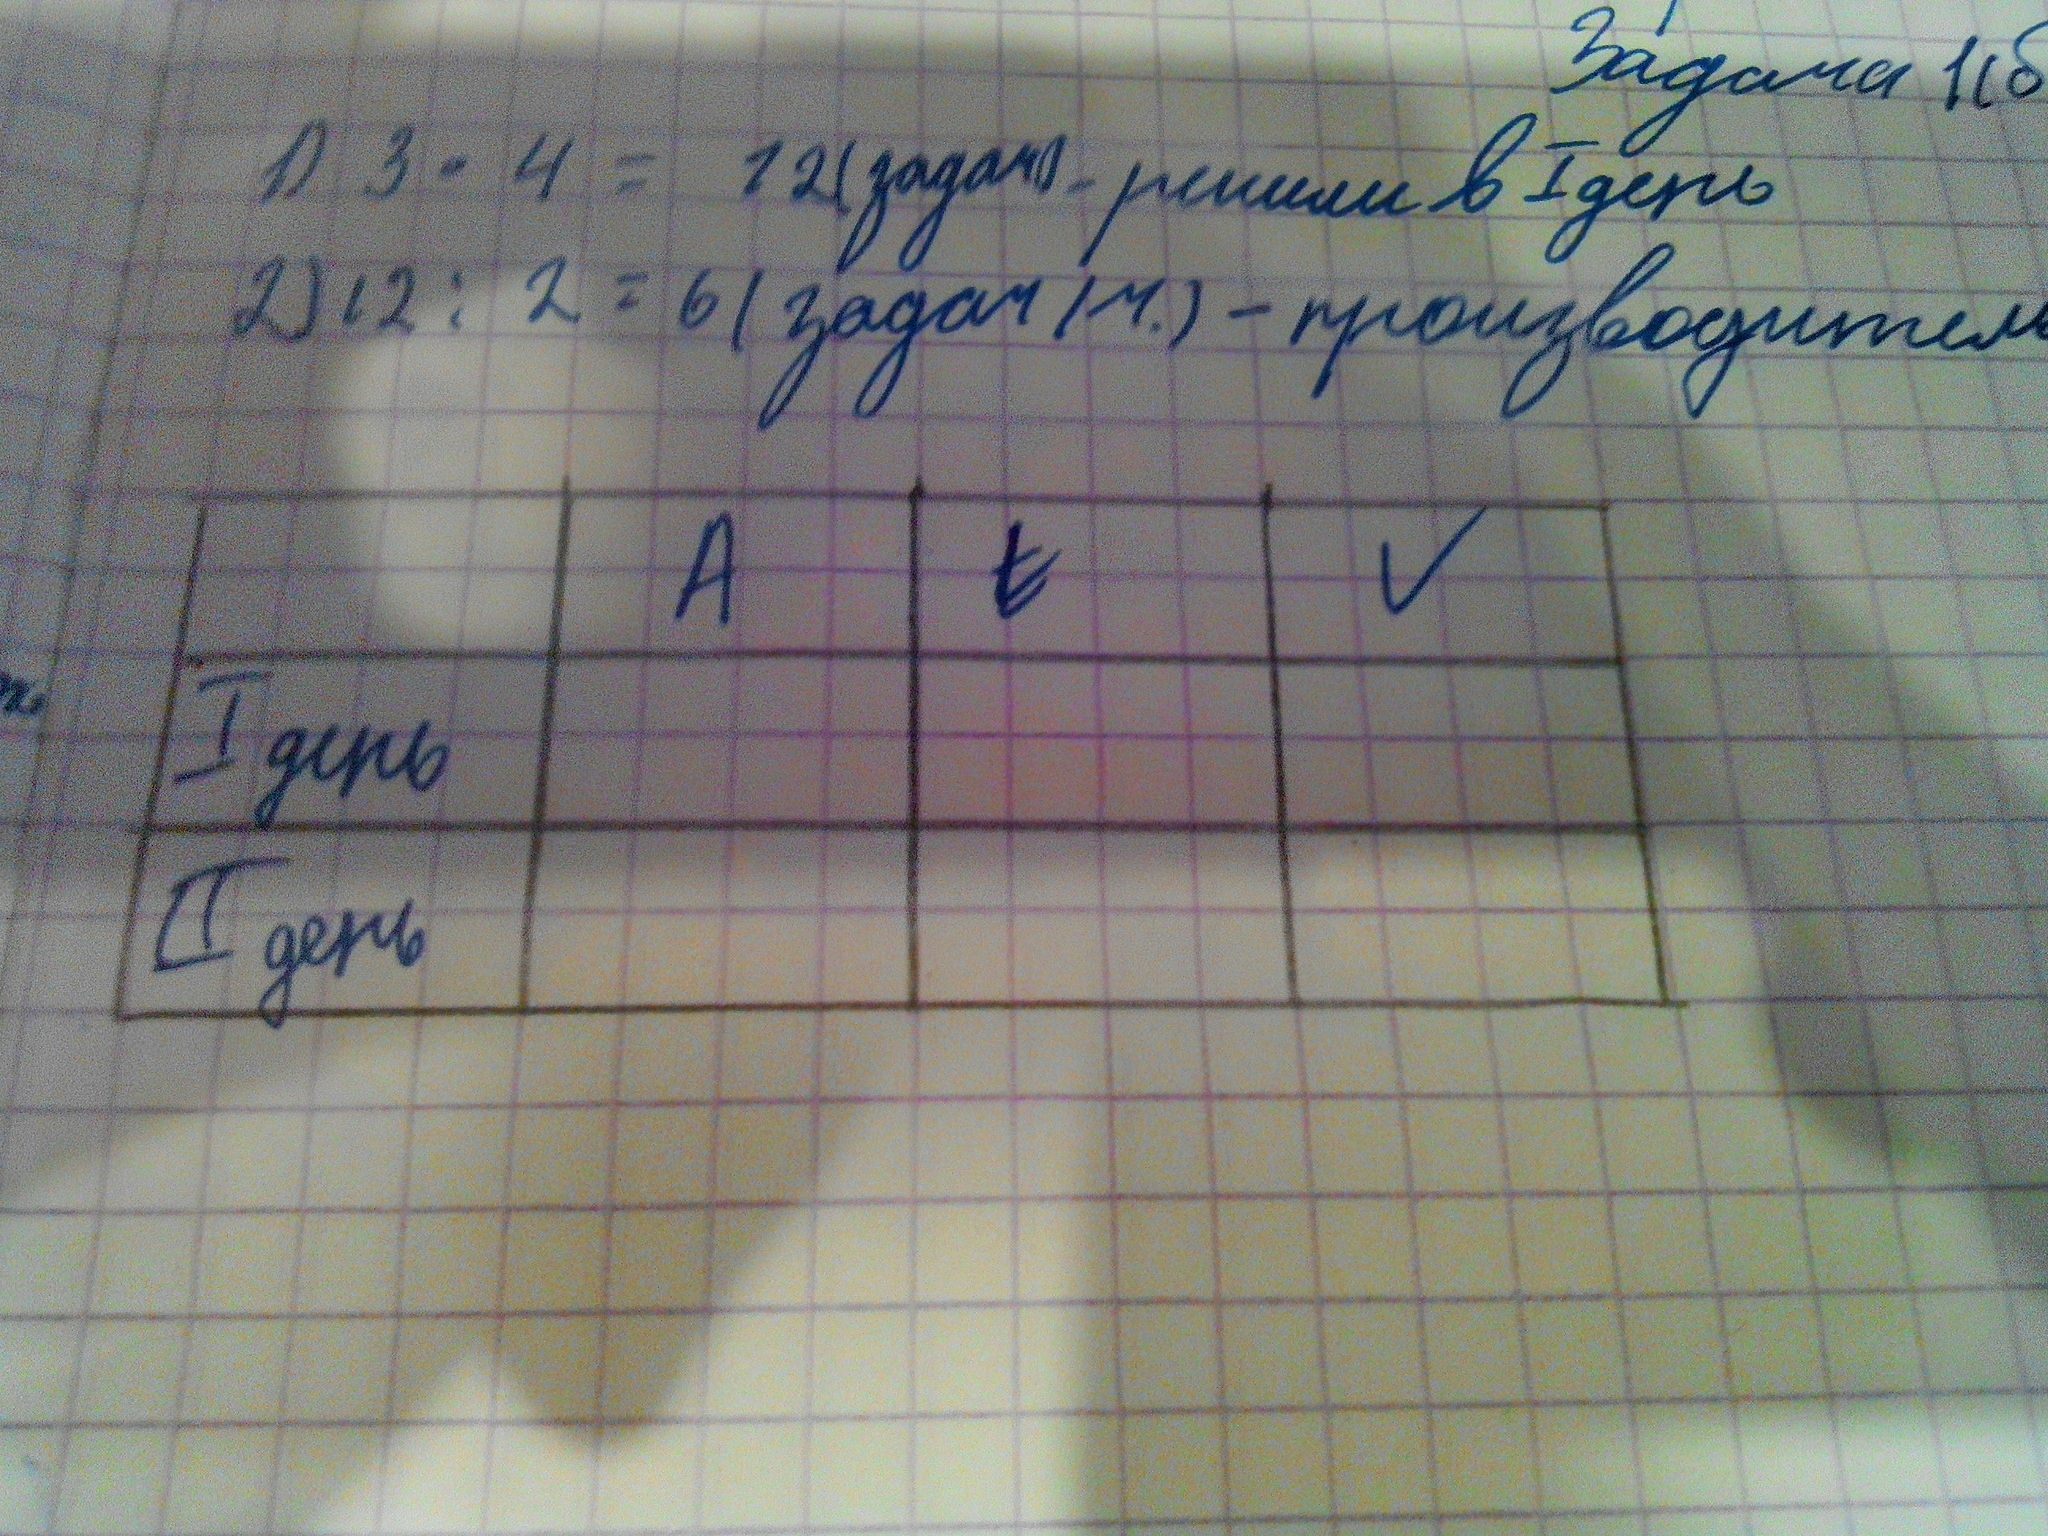 Задача 1(б
1) 3 · 4 = 12 (задач) - решили в I день
2) 12 : 2 = 6 (задач / ч.) - производитель
A t V
I день
II день